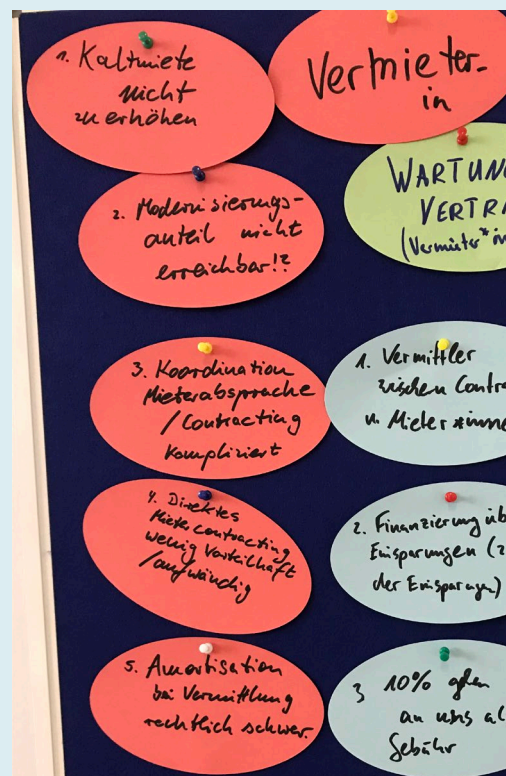 1. Kaltmiete
nicht
zu erhöhen
Vermieter-
in
2. Modernisierungs-
anteil nicht
erreichbar!?
WARTUN
VERTRA
(Vermieter*in
3. Koordination
Mieterabsprache
/ Contracting
kompliziert
1. Vermittler
zwischen Contra
u. Mieter*inne
4. Direktes
Mietercontracting
wenig vorteilhaft
/aufwändig
2. Finanzierung üb
Einsparungen (2
der Einsparungen)
5. Amortisation
bei Vermittlung
rechtlich schwer.
3 10% gehen
an uns al
Gebühr